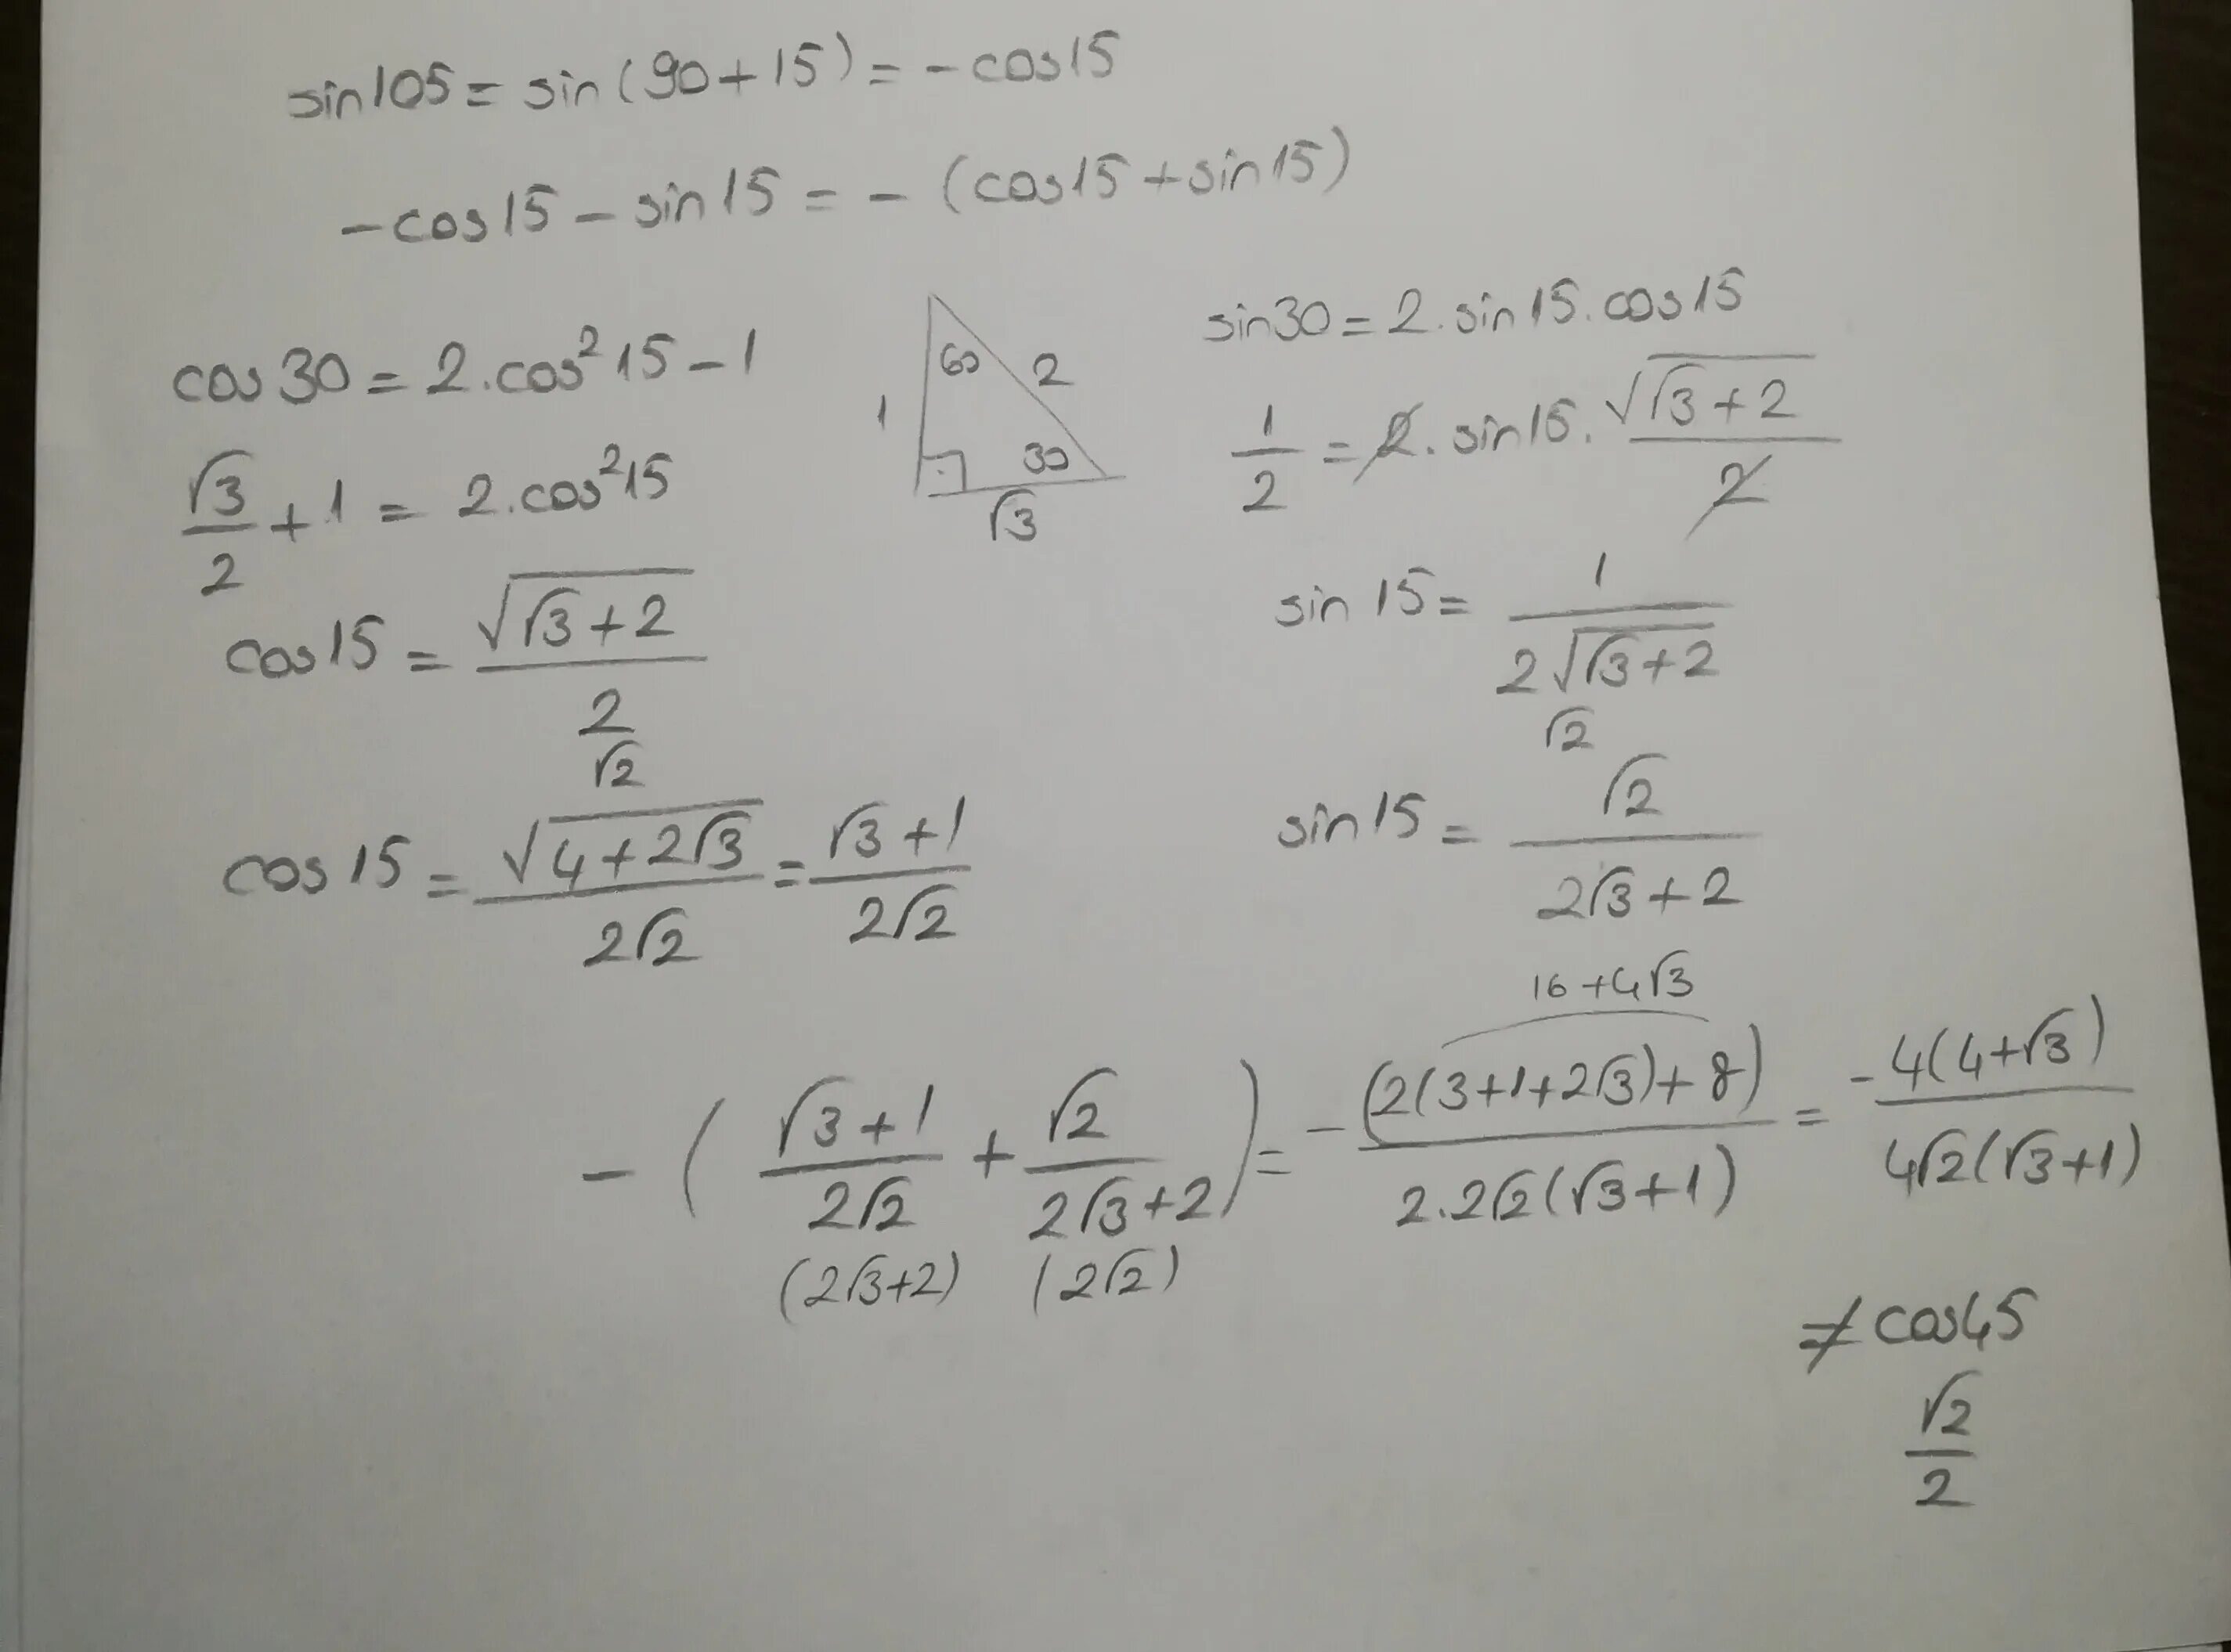 sin105 = sin(90+15) = -cos15
-cos15 - sin15 = - (cos15 + sin15)
cos30 = 2.cos²15 - 1
√3/2 + 1 = 2.cos²15
cos15 = √(√3+2)/2
√2
cos15 = √(4+2√3)/2√2 = √3+1/2√2
60
2
1
30
√3
sin30 = 2.sin15.cos15
1/2 = 2.sin15.√(√3+2)/2
sin15 = 1/2√(√3+2)
√2
sin15 = √2/2√3+2
16+4√3
-(√3+1/2√2 + √2/2√3+2) = -(2(3+1+2√3)+8)/2.2√2(√3+1) = -4(4+√3)/4√2(√3+1)
(2√3+2) (2√2)
≠ cos45
√2/2